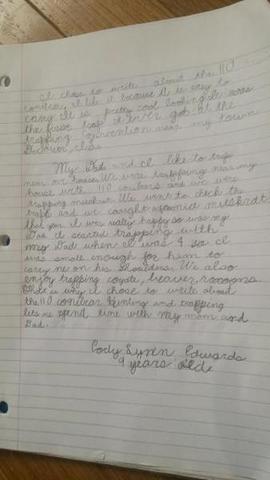 I chose to write about the 110
conibear. I like it because it is easy to
carry. It is pretty cool looking. It was
the first trap I ever got at the
trapping convention near my town
My Dad and I like to trap
near our house. We were trapping near my
house with 110 conibears and we were
trapping muskrat. We went to check the
traps and we caught
that year. It was really happy so was my
Dad. I started trapping with
my Dad when I was 4 so I
was small enough for him to
carry me on his shoulders. We also
enjoy trapping coyote, beaver,
is why I chose to write about
the 110 conibear. Hunting and trapping
lets me spend time with my mom and
Dad.
Cody Lynn Edwards
9 years old